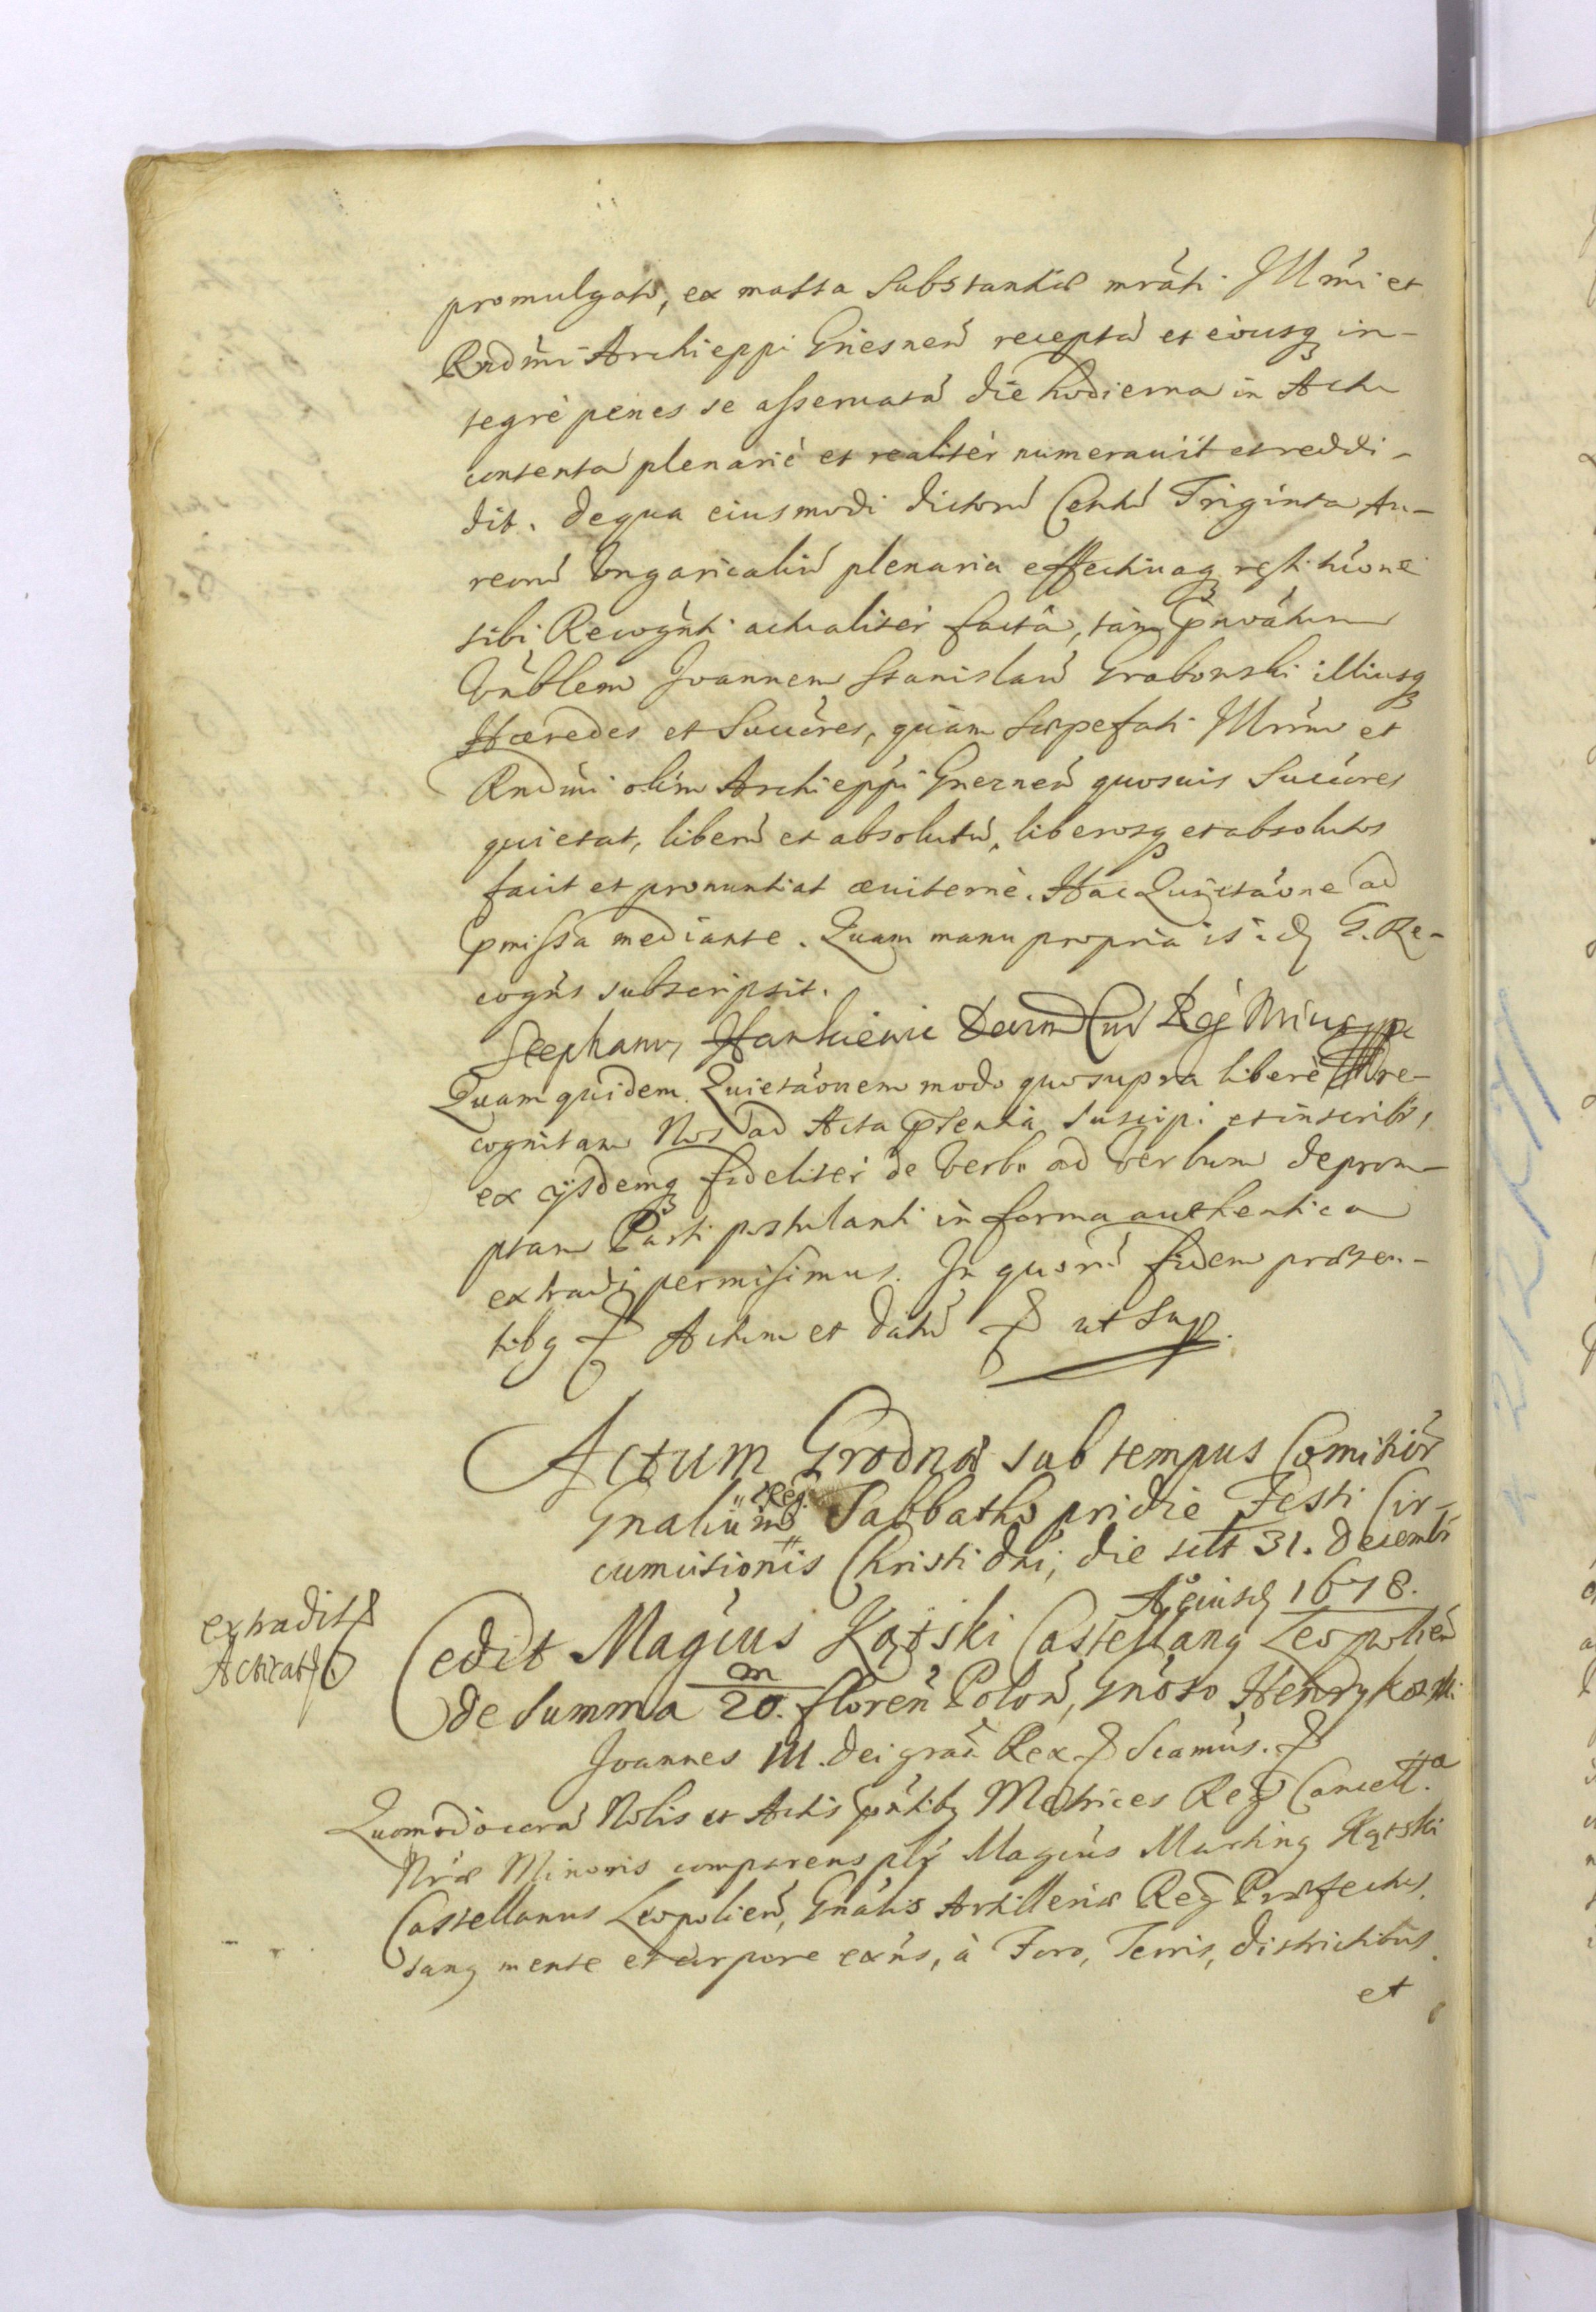 promulgato, ex massa Substantiæ mrati Illmi et
Rndmi Archieppi Gnesnen recepta et eousq in-
tegrè penes se asseruata die hodierna in Actu
contenta plenariè et realitèr numerauit et reddi-
dit. De qua eiusmodi dictoru Centu Triginta Au-
reoru Vngaricaliu plenaria effectiuaq restitu͠one
sibi Recognti actualitèr factâ, tàm pnoatum
Gnblem Joannem Stanislau Grabowski illiusq
Hæredes et Succres, quàm sæpefati Illrmi et
Rndmi olim Archieppi Gneznen quosuis Succres
quietat, liberu et absolutu, liberosq et absolutos
facit et pronuntiat æuiternè. Hac Quieta͠one ad
pmissa mediante. Quam manu propria is: q G. Re-
cogns subscripsit.
Stephanus Hankiewic Decretorum Cur Reg Nrius mp
Quam quidem Quieta͠onem modo quo supra liberè re-
cognitam Nos ad Acta pntia suscipi et inscribi,
ex ijsdemq fidelitèr de verbo ad verbum deprom-
ptam Parti postulanti in forma authentica
extradi permisimus. In quoru fidem præsen-
tibq Actum et datu ut sup.
Actum Grodnæ sub tempus Comitior
Gnaliu Reg. Sabbatho pridie Festi Cir-
cumcisionis Christi Dni, die scilt 31. Decembr
Ao eiusd 1678.
extradit
Acticat
Cedit Magcus Kątski Castellanq Leopolien
de Summa 20.m floren Polon, Gnoso Henrykowski
Joannes III. Dei gra Rex Scamus.
Quomodo cora Nobis et Actis pntibq Metrices Reg Cancella
Nræ Minoris comparens plr Magcus Martinq Kątski
Castellanus Leopolien, Gnalis Artilleriæ Reg Præfectus
sanq mente et corpore exns, à Foro, Terris, districtibus
et